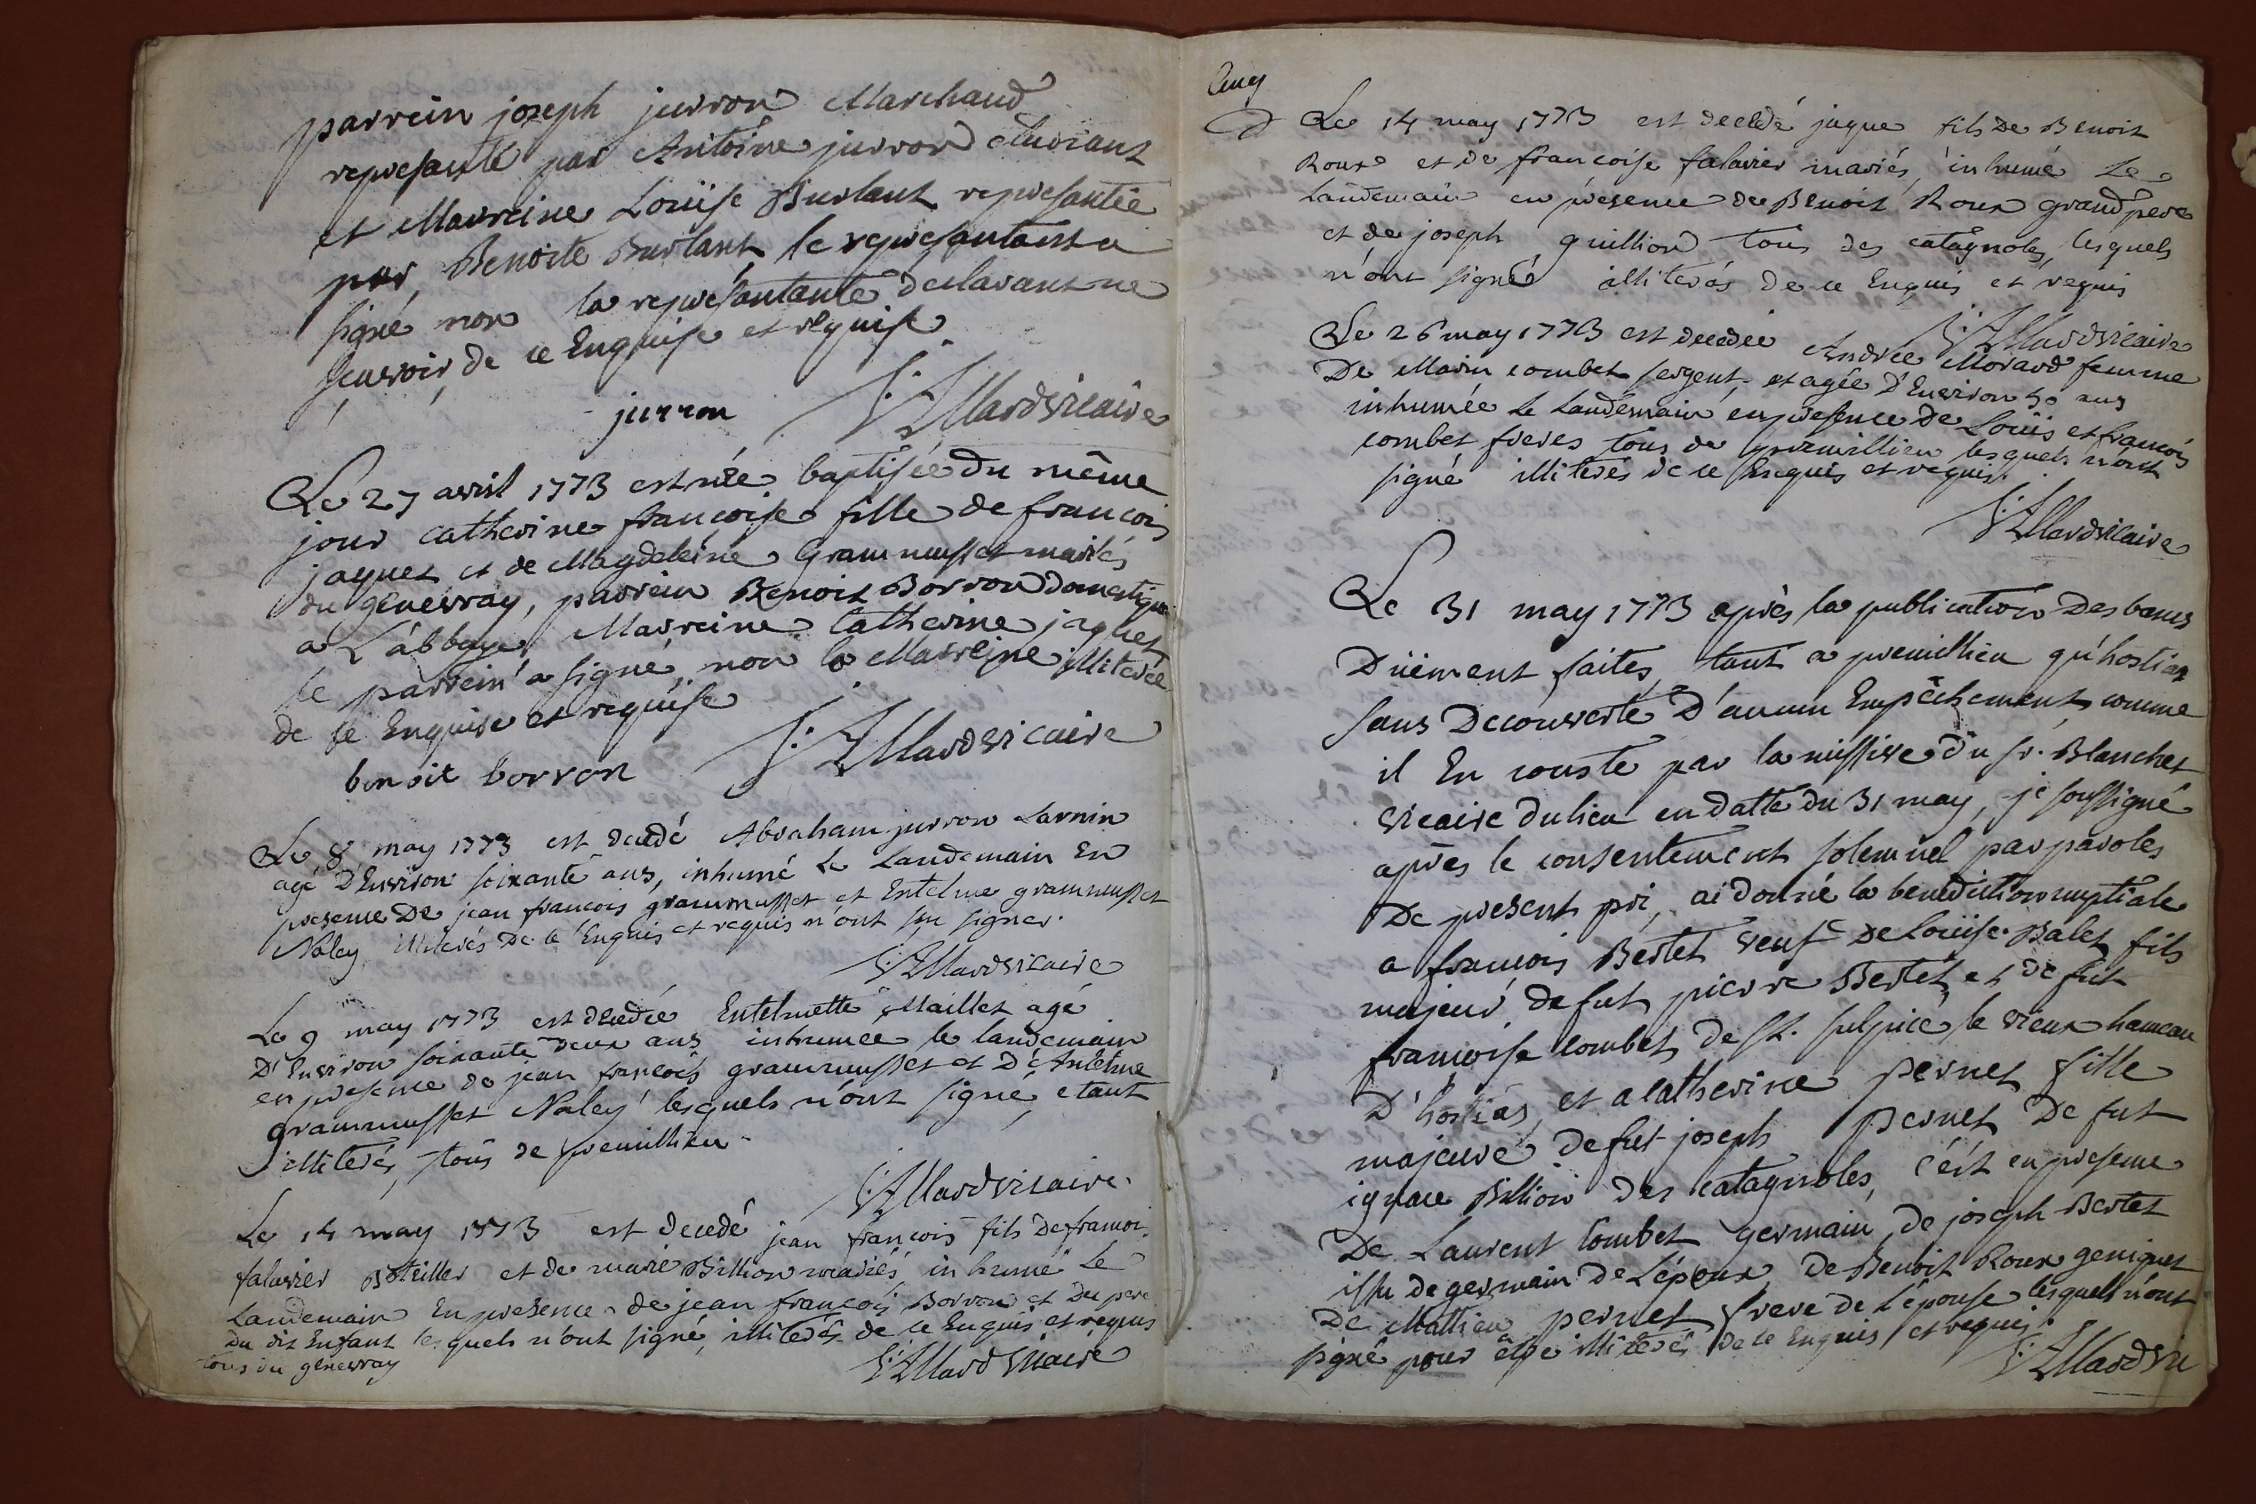 parrein joseph jurron Marchand
represanté par Antoine jurron étudiant
et Marreine Loüise Burlant represantée
par Benoite Burlant, le represantant a
signé non la represantante declarant ne
scavoir, de ce Enquise et requise
jurron J: Allard vicaire
Le 27 avril 1773 est née baptisée du même
jour catherine françoise fille de francois
jaquet et de Magdeleine Grammusset mariés
du genevray, parrein Benoit Borron domestique
a L'abbaye, Marreine Catherine jaquet
le parrein a signé, non la Marreine illiterée
de ce Enquise et requise
benoit borron J: Allard vicaire
Le 8 may 1773 est decedé Abraham jurron Larnin
agé D'Environ soixante ans, inhumé Le Landemain En
presence De jean francois grammusset et Entelme grammusset
Naley illiterés De ce Enquis et requis n'ont sçu signer.
J: Allard vicaire
Le 9 may 1773 est decedée Entelmette Maillet agé
D'Environ soixante deux ans inhumee le landemain
en presence de jean françois grammusset et D'Antelme
grammusset Naley lesquels n'ont signé, etant
illiterés, tous de premillieu.
J: Allard vicaire.
Le 14 may 1773 est decedé jean françois fils De francoi
falavier Boteiller et de marie Billion mariés, inhumé Le
Landemain En presence de jean françois Borron et Du pere
Du dit Enfant lesquels n'ont signé, illiterés de ce Enquis et requis
tous du genevray J: Allard vicaire
Cinq
Le 14 may 1773 est decedé jaque fils De Benoit
Roux et de francoise falavier mariés, inhumé Le
Landemain en presence de Benoit Roux grand pere
et de joseph guillion tous des catagnoles, lesquels
n'ont signé illiterés de ce Enquis et requis
J: Allard vicaire
Le 26 may 1773 est decedée Andrée Morard femme
De Marin combet sergent, et agée D'Environ 50 ans
inhumée Le Landemain en presence De Loüis et françois
combet freres tous de premillieu lesquels n'ont
signé illiterés de ce Enquis et requis.
J: Allard vicaire
Le 31 may 1773 après la publication Des bans
Düement faites, tant a premillieu qu'hostias
sans Decouverte D'aucun Empêchement, comme
il En conste par la missive du sr. Blanchet
vicaire du lieu en datte du 31 may, je soussigné
après le consentement solemnel par paroles
De present pri, ai donné la benediction nuptiale
a françois Bertet veuf De Loüise Balet fils
majeur de fut pierre Bertet, et de fut
françoise combet de st. sulpice le vieux hameau
D'hostias, et a Catherine pernet fille
majeure de fut joseph pernet De fut
ignace Billion des Catagnoles, c'est en presence
De Laurent Combet germain, de joseph Bertet
issu de germain de L'époux, de Benoit Roux geniquet
De Mathieu pernet frere de L'épouse lesquels n'ont
signé pour être illiterés de ce Enquis et requis.
J: Allard vic